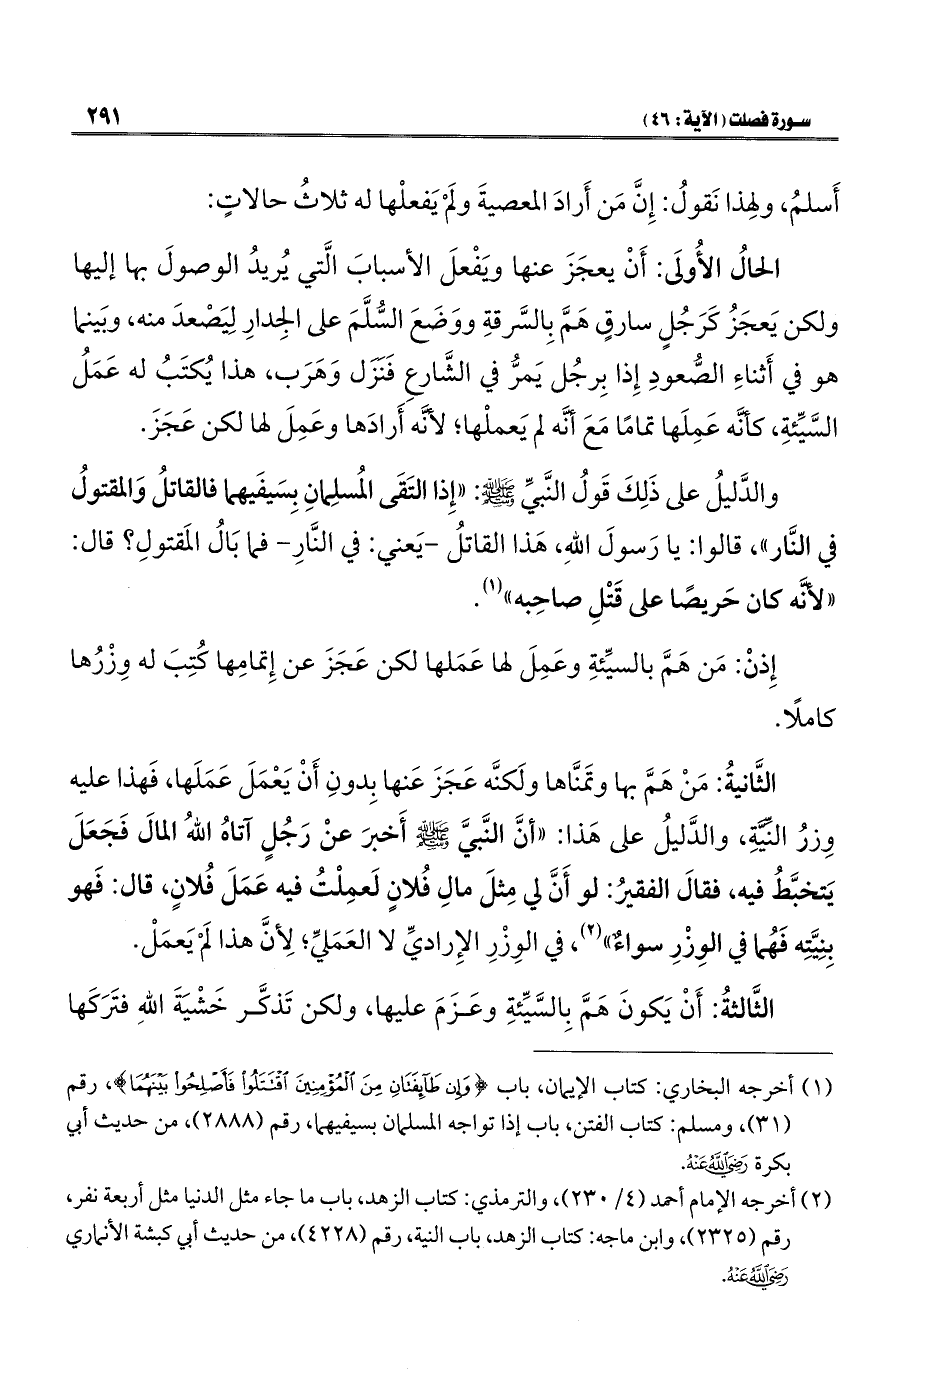 سورة فصلت (الآية: ٤٦)
٢٩١
أَسلمُ، ولهذا نَقولُ: إنَّ مَن أَرادَ المعصيةَ ولَمْ يَفعلْها له ثلاثُ حالاتٍ:
الحالُ الأُولَى: أنْ يعجَزَ عنها ويَفْعلَ الأسبابَ الَّتي يُريدُ الوصولَ بها إليها
ولكن يَعجَزُ كَرَجُلٍ سارقٍ هَمَّ بِالسَّرقةِ ووَضَعَ السُّلَّمَ على الجِدارِ لِيَصْعدَ منه، وبَينما
هو في أَثناءِ الصُّعودِ إذا بِرجُل يَمرُّ في الشَّارعِ فَنَزَل وَهَرَب، هذا يُكتَبُ له عَمَلُ
السَّيِّئةِ، كأنَّه عَمِلَها تمامًا مَعَ أنَّه لم يَعملْها؛ لأنَّه أَرادَها وعَمِلَ لها لكن عَجَزَ.
والدَّليلُ على ذَلِكَ قَولُ النَّبيِّ ﷺ: «إذا التَقَى المُسلِمانِ بِسَيفَيهِما فالقاتلُ وَالمَقتولُ
في النَّار»، قالوا: يا رَسولَ اللهِ، هَذا القاتلُ -يَعني: في النارِ- فما بَالُ المَقتولِ؟ قال:
«لأنَّه كان حَريصًا على قَتْلِ صاحِبِه»(١).
إِذنْ: مَن هَمَّ بالسيِّئةِ وعَمِلَ لها عَمَلها لكن عَجَزَ عن إتمامِها كُتِبَ له وِزْرُها
كاملًا.
الثَّانيةُ: مَنْ هَمَّ بها وتمنَّاها ولَكنَّه عَجَزَ عَنها بِدونِ أَنْ يَعْمَلَ عَمَلَها، فَهذا عليه
وِزرُ النِّيَّةِ، والدَّليلُ على هَذا: «أنَّ النَّبيَّ ﷺ أَخبرَ عنْ رَجُلٍ آتاهُ اللهُ المالَ فَجَعَلَ
يَتخبَّطُ فيه، فقالَ الفقيرُ: لو أنَّ لي مِثلَ مالِ فُلانٍ لَعمِلْتُ فيه عَمَلَ فُلانٍ، قال: فَهو
بِنيَّتِه فَهُما في الوِزْرِ سواءٌ»(٢)، في الوِزْرِ الإراديِّ لا العَمَليِّ؛ لِأنَّ هذا لَمْ يَعملْ.
الثَّالثةُ: أَنْ يَكونَ هَمَّ بِالسَّيِّئةِ وعَزَمَ عليها، ولكن تَذكَّر خَشْيَةَ اللهِ فتَرَكَها
(١) أخرجه البخاري: كتاب الإيمان، باب ﴿وَإِن طَآئِفَتَانِ مِنَ ٱلْمُؤْمِنِينَ ٱقْتَتَلُوا۟ فَأَصْلِحُوا۟ بَيْنَهُمَا﴾، رقم
(٣١)، ومسلم: كتاب الفتن، باب إذا تواجه المسلمان بسيفيهما، رقم (٢٨٨٨)، من حديث أبي
بكرة رَضِيَ اللَّهُ عَنْهُ.
(٢) أخرجه الإمام أحمد (٤/ ٢٣٠)، والترمذي: كتاب الزهد، باب ما جاء مثل الدنيا مثل أربعة نفر،
رقم (٢٣٢٥)، وابن ماجه: كتاب الزهد، باب النية، رقم (٤٢٢٨)، من حديث أبي كبشة الأنماري
رَضِيَ اللَّهُ عَنْهُ.